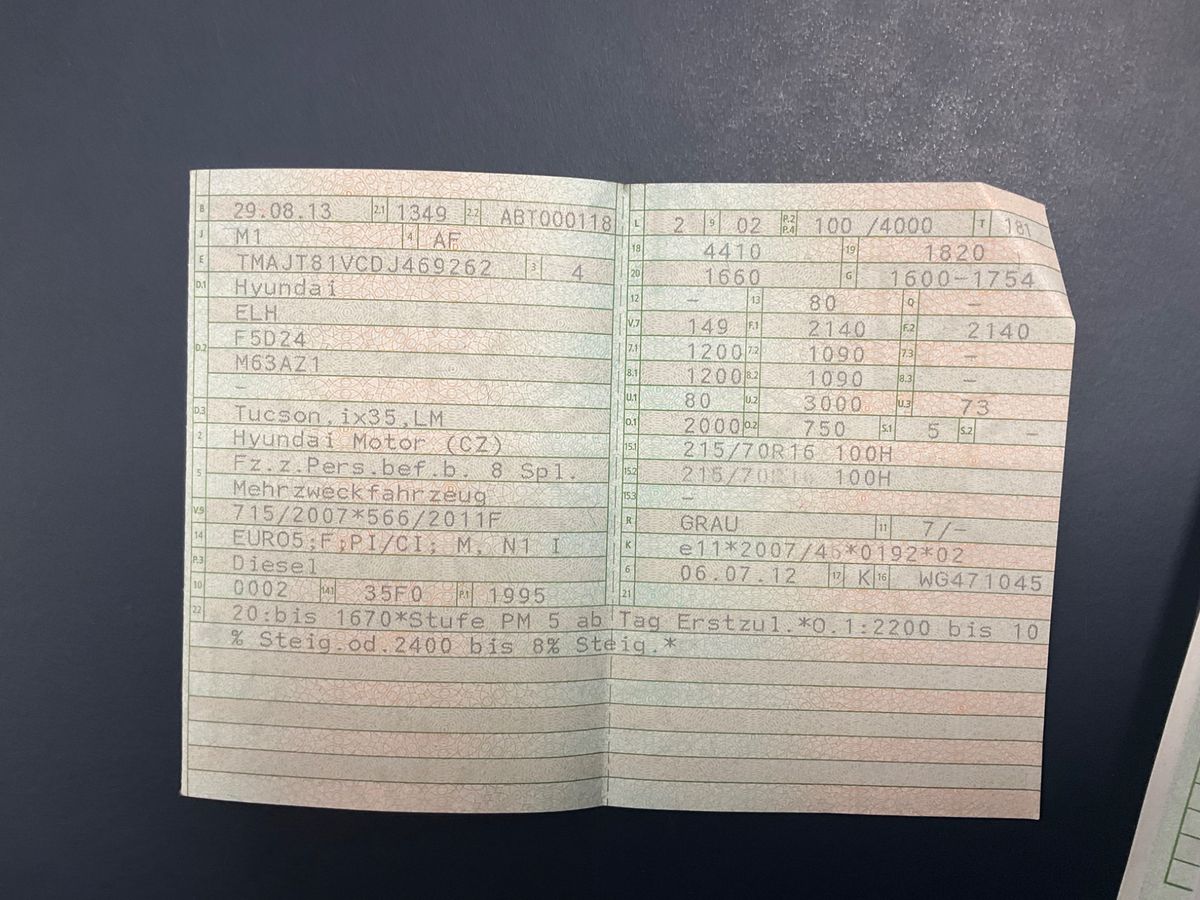 B 29.08.13 2.1 1349 2.2 ABT000118
J M1 4 AF
E TMAJT81VCDJ469262 3 4
D.1 Hyundai
ELH
D.2 F5D24
M63AZ1
–
D.3 Tucson,ix35,LM
2 Hyundai Motor (CZ)
5 Fz.z.Pers.bef.b. 8 Spl.
Mehrzweckfahrzeug
V.9 715/2007*566/2011F
14 EURO5;F;PI/CI; M, N1 I
P.3 Diesel
10 0002 14.1 35F0 P.1 1995
L 2 9 02 P.2 P.4 100 /4000 T 181
18 4410 19 1820
20 1660 G 1600-1754
12 – 13 80 Q –
V.7 149 F.1 2140 F.2 2140
7.1 1200 7.2 1090 7.3 –
8.1 1200 8.2 1090 8.3 –
U.1 80 U.2 3000 U.3 73
O.1 2000 O.2 750 S.1 5 S.2 –
15.1 215/70R16 100H
15.2 215/70R16 100H
15.3 –
R GRAU 11 7/–
K e11*2007/46*0192*02
6 06.07.12 17 K 16 WG471045
21
22 20:bis 1670*Stufe PM 5 ab Tag Erstzul.*O.1:2200 bis 10
% Steig.od.2400 bis 8% Steig.*